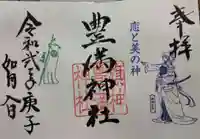 奉拝
恋と美の神
豊満神社
令和弐年庚子
如月